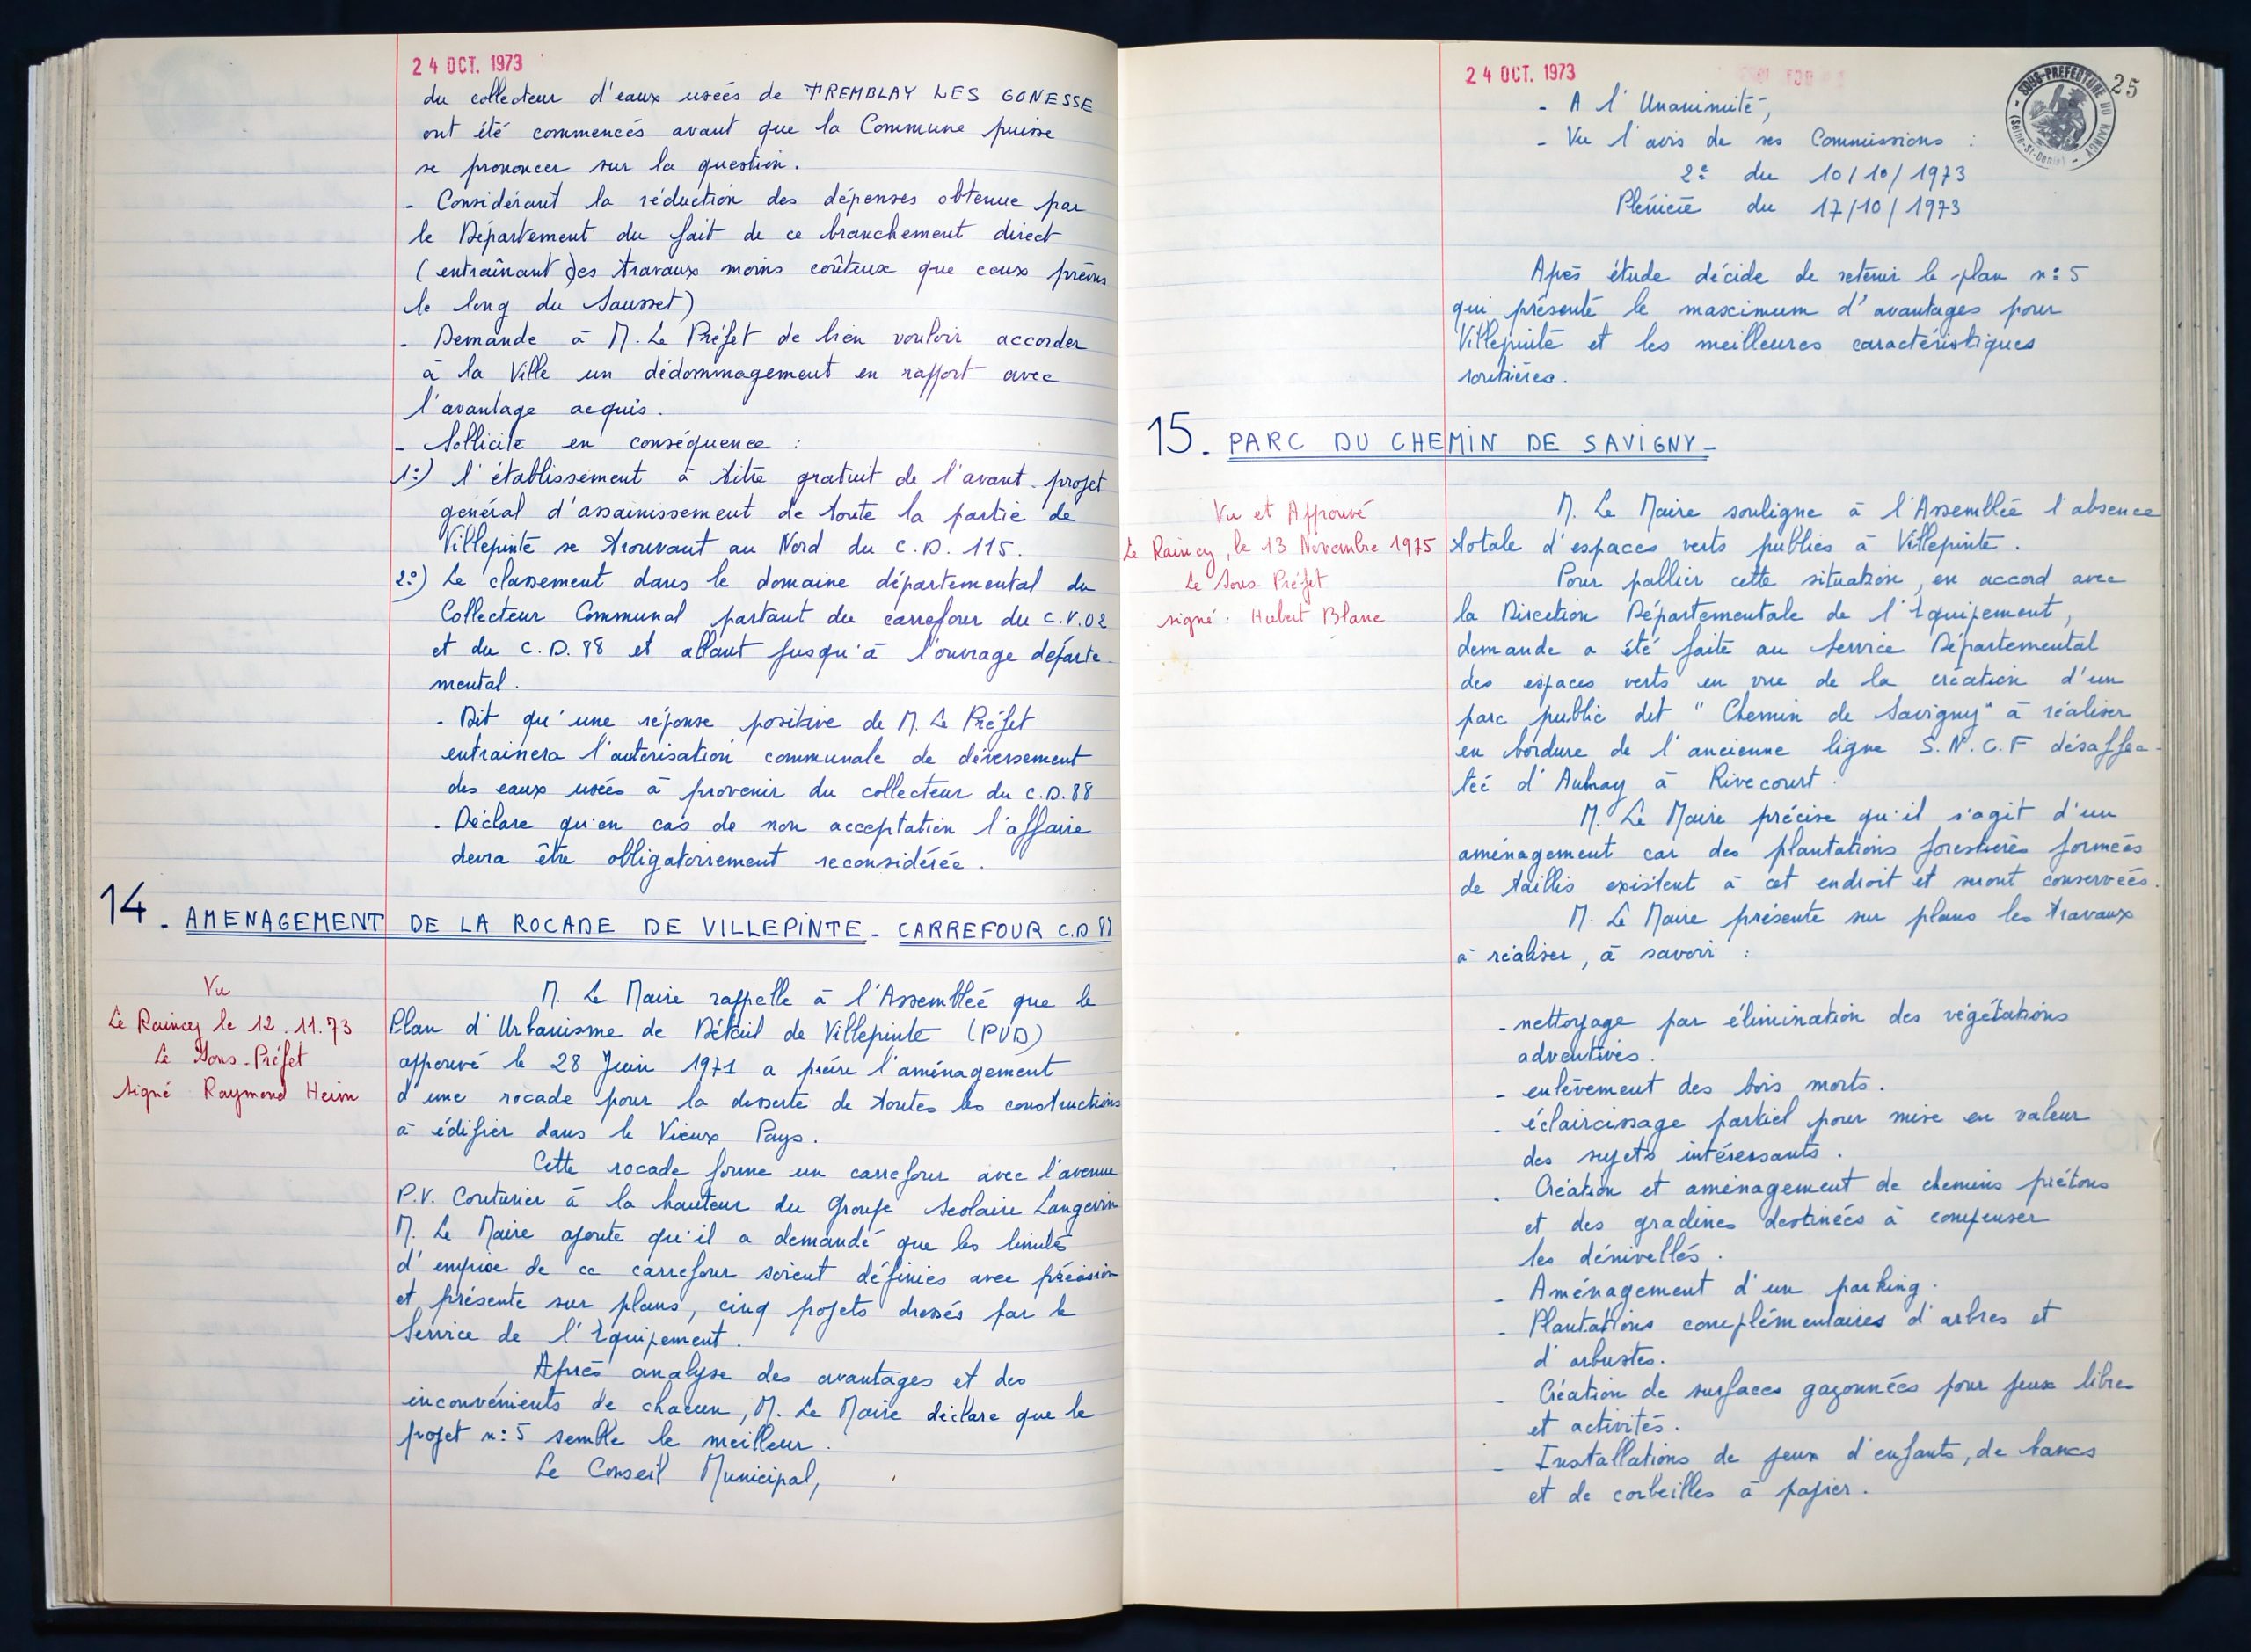 24 OCT. 1973
du collecteur d'eaux usées de TREMBLAY LES GONESSE
ont été commencés avant que la Commune puisse
se prononcer sur la question.
- Considérant la réduction des dépenses obtenue par
le Département du fait de ce branchement direct
(entraînant des travaux moins coûteux que ceux prévus
le long du Sausset)
- Demande à M. Le Préfet de bien vouloir accorder
à la Ville un dédommagement en rapport avec
l'avantage acquis.
- Sollicite en conséquence :
1°) l'établissement à titre gratuit de l'avant-projet
général d'assainissement de toute la partie de
Villepinte se trouvant au Nord du C.D. 115.
2°) Le classement dans le domaine départemental du
Collecteur Communal partant du carrefour du C.V.02
et du C.D. 88 et allant jusqu'à l'ouvrage départe-
mental.
- Dit qu'une réponse positive de M. Le Préfet
entrainera l'autorisation communale de déversement
des eaux usées à provenir du collecteur du C.D.88
- Déclare qu'en cas de non acceptation l'affaire
devra être obligatoirement reconsidérée.
14. AMENAGEMENT DE LA ROCADE DE VILLEPINTE - CARREFOUR C.D
Vu
Le Raincy le 12.11.73
Le Sous-Préfet
signé Raymond Heim
M. Le Maire rappelle à l'Assemblée que le
Plan d'Urbanisme de Détail de Villepinte (PUD)
approuvé le 28 Juin 1971 a prévu l'aménagement
d'une rocade pour la desserte de toutes les constructions
à édifier dans le Vieux Pays.
Cette rocade forme un carrefour avec l'avenue
P.V. Couturier à la hauteur du Groupe Scolaire Langevin
M. Le Maire ajoute qu'il a demandé que les limites
d'emprise de ce carrefour soient définies avec précision
et présente sur plans, cinq projets dressés par le
Service de l'Equipement.
Après analyse des avantages et des
inconvénients de chacun, M. Le Maire déclare que le
projet n° 5 semble le meilleur.
Le Conseil Municipal,
24 OCT. 1973
25
SOUS-PREFECTURE DU RAINCY
(Seine-St-Denis)
- A l'Unanimité,
- Vu l'avis de ses Commissions :
2e du 10/10/1973
Plénière du 17/10/1973
Après étude décide de retenir le plan n° 5
qui présente le maximum d'avantages pour
Villepinte et les meilleures caractéristiques
routières.
15. PARC DU CHEMIN DE SAVIGNY -
Vu et Approuvé
Le Raincy, le 13 Novembre 1975
Le Sous-Préfet
signé : Hubert Blanc
M. Le Maire souligne à l'Assemblée l'absence
totale d'espaces verts publics à Villepinte.
Pour pallier cette situation, en accord avec
la Direction Départementale de l'Equipement,
demande a été faite au Service Départemental
des espaces verts en vue de la création d'un
parc public dit "Chemin de Savigny" à réaliser
en bordure de l'ancienne ligne S.N.C.F désaffec-
tée d'Aulnay à Rivecourt.
M. Le Maire précise qu'il s'agit d'un
aménagement car des plantations forestières formées
de taillis existent à cet endroit et seront conservées.
M. Le Maire présente sur plans les travaux
à réaliser, à savoir :
- nettoyage par élimination des végétations
adventives.
- enlèvement des bois morts.
- éclaircissage partiel pour mise en valeur
des sujets intéressants.
- Création et aménagement de chemins piétons
et des gradines destinées à compenser
les dénivellés.
- Aménagement d'un parking.
- Plantations complémentaires d'arbres et
d'arbustes.
- Création de surfaces gazonnées pour jeux libres
et activités.
- Installations de jeux d'enfants, de bancs
et de corbeilles à papier.